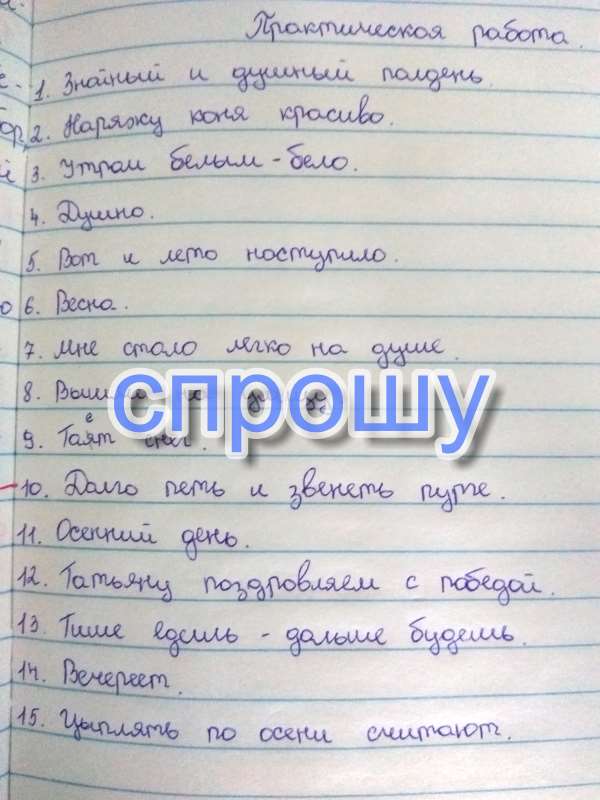 Практическая работа.
1. Знойный и душный полдень.
2. Наряжу коня красиво.
3. Утром белым-бело.
4. Душно.
5. Вот и лето наступило.
6. Весна.
7. Мне стало легко на душе.
8.
спрошу
9. Тает снег.
10. Долго петь и звенеть пурге.
11. Осенний день.
12. Татьяну поздравляем с победой.
13. Тише едешь - дальше будешь.
14. Вечереет.
15. Цыплять по осени считают.